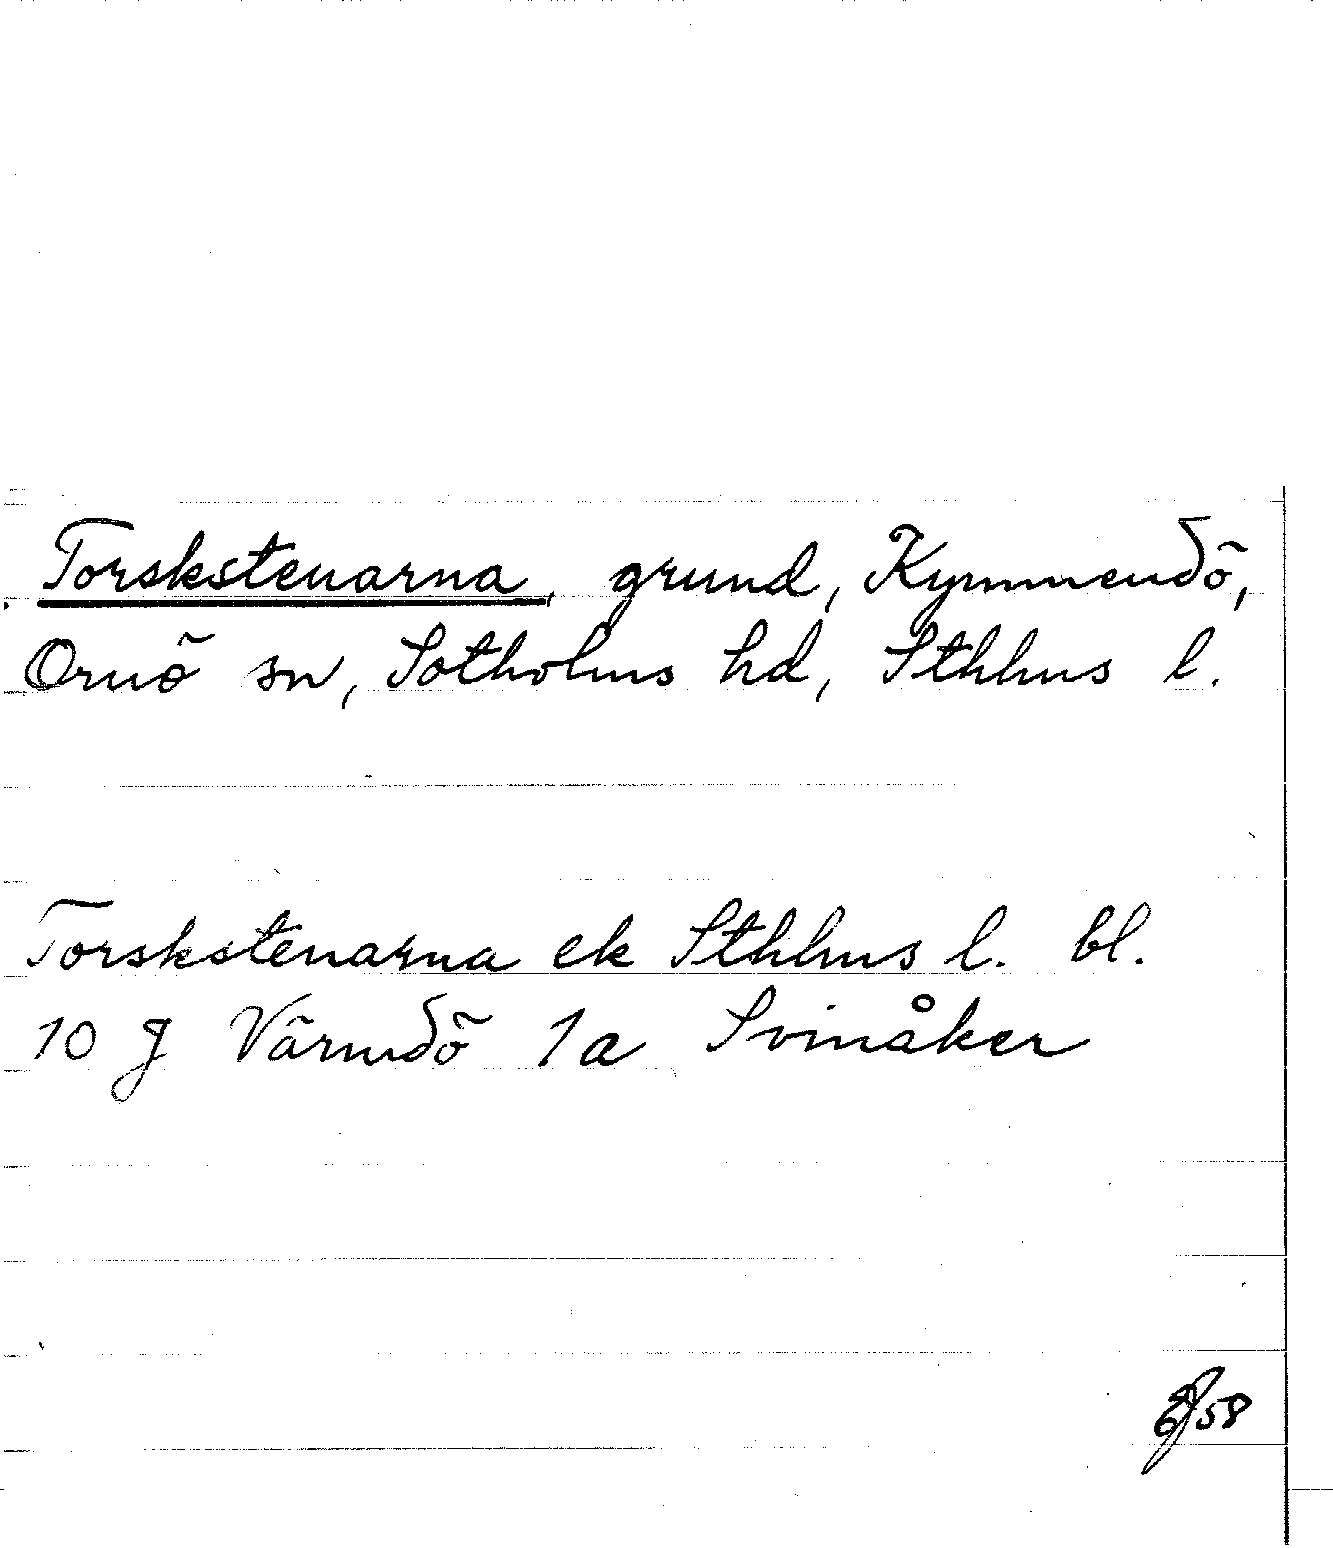 Torskstenarna, grund, Kymmendö,
Ornö sn, Sotholms hd, Sthlms l.
Torskstenarna ek Sthlms l. bl.
10 g Värmdö 1a Svinåker
58